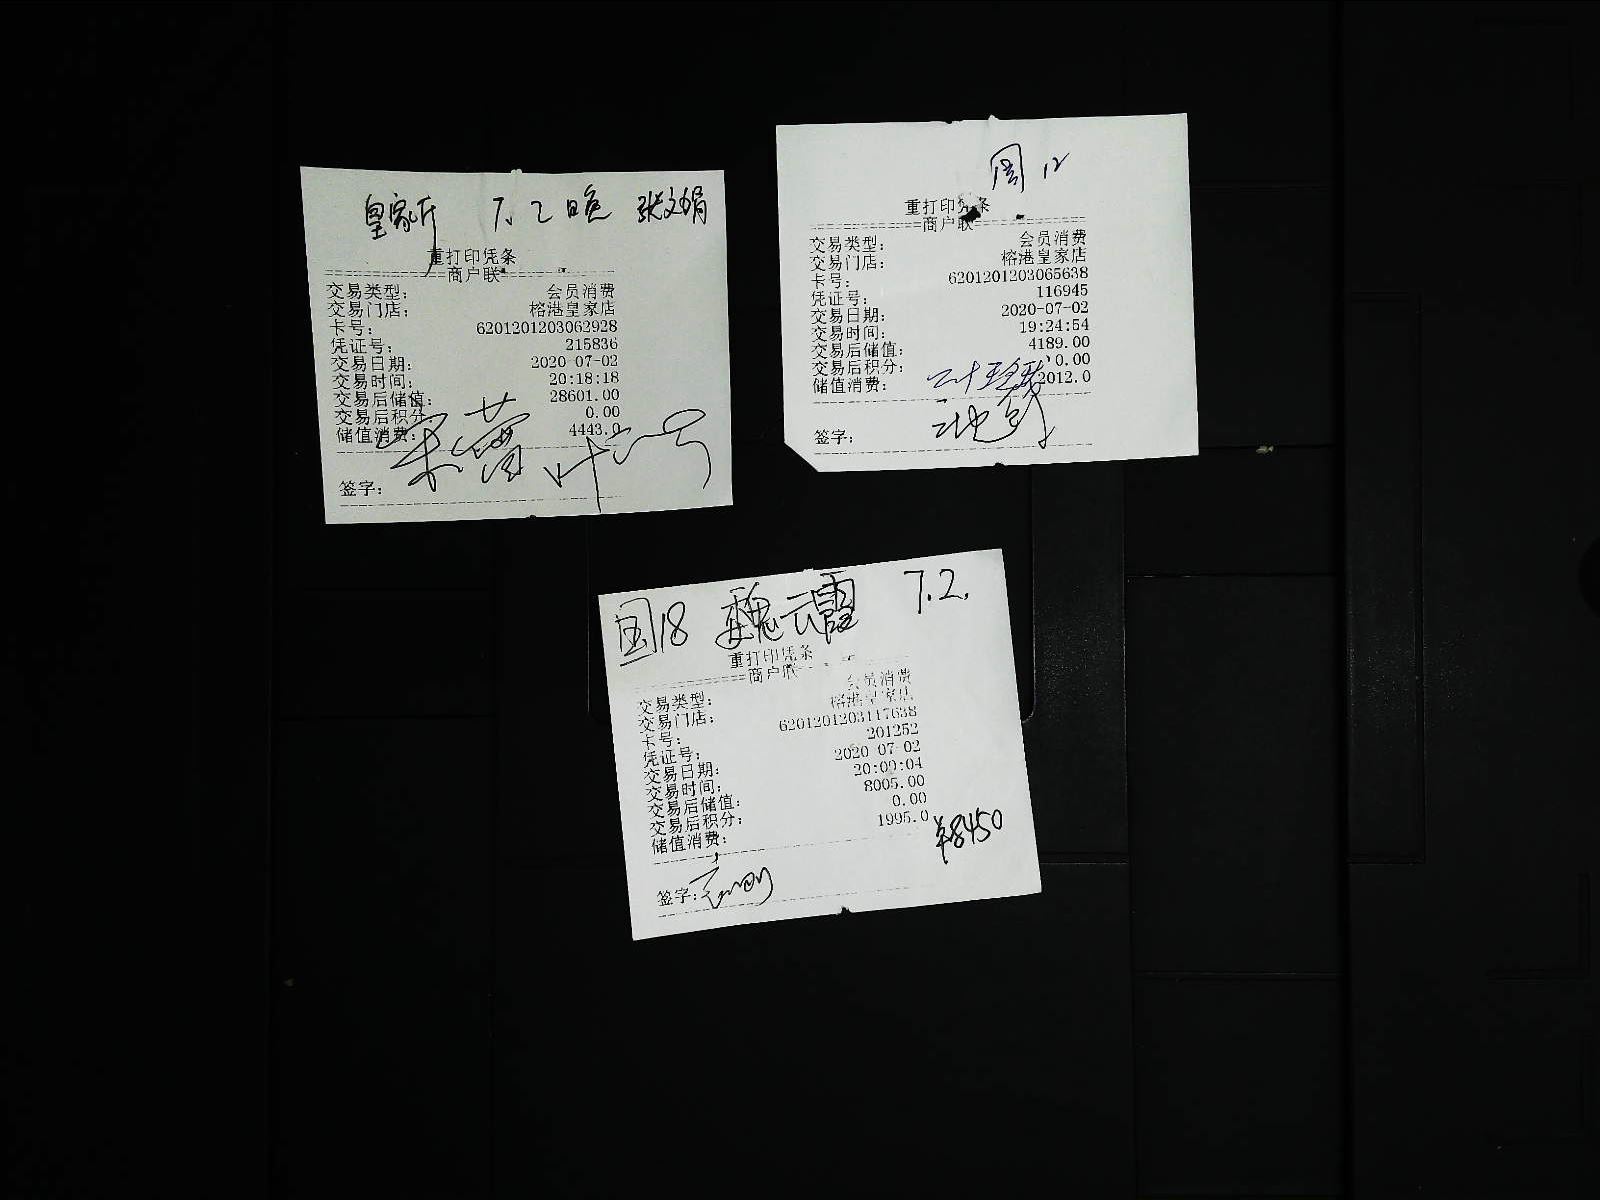 皇家厅 7.2晚 张文娟
重打印凭条
商户联
交易类型: 会员消费
交易门店: 榕港皇家店
卡号: 6201201203062928
凭证号: 215836
交易日期: 2020-07-02
交易时间: 20:18:18
交易后储值: 28601.00
交易后积分: 0.00
储值消费: 4443.0
签字:
12
重打印凭条
商户联
交易类型: 会员消费
交易门店: 榕港皇家店
卡号: 6201201203065638
凭证号: 116945
交易日期: 2020-07-02
交易时间: 19:24:54
交易后储值: 4189.00
交易后积分: 0.00
储值消费: 2012.0
签字:
国18 魏云霞 7.2.
重打印凭条
商户联
交易类型: 会员消费
交易门店: 榕港皇家店
卡号: 6201201203117638
凭证号: 201252
交易日期: 2020-07-02
交易时间: 20:09:04
交易后储值: 8005.00
交易后积分: 0.00
储值消费: 1995.0
¥8450
签字: